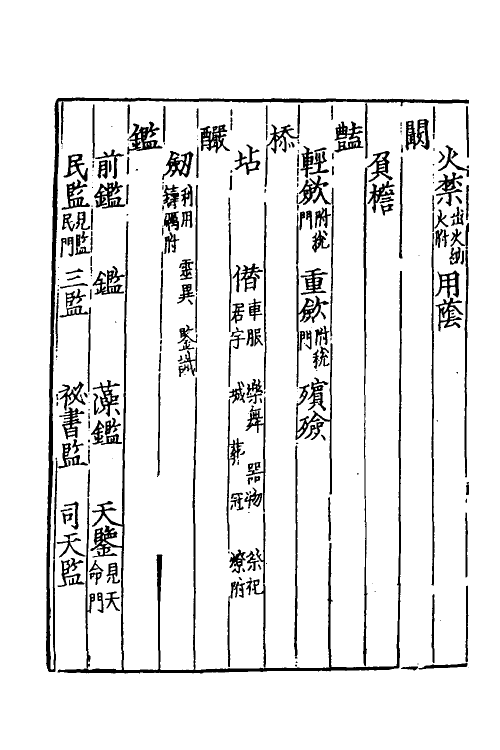 火禁 出火 火附 用蔭
闞
負檐
豔
輕斂 附稅門 重斂 附稅門 殯殮
㮇
坫 僣 車服 樂舞 器物 祭祀 君字 城 葬 冠 燎附
釅
劒 利用 鑄礪附 靈異 鑒識
鑑
前鑑 鑑 藻鑑 天鑒 見天命門
民監 見監民門 三監 祕書監 司天監